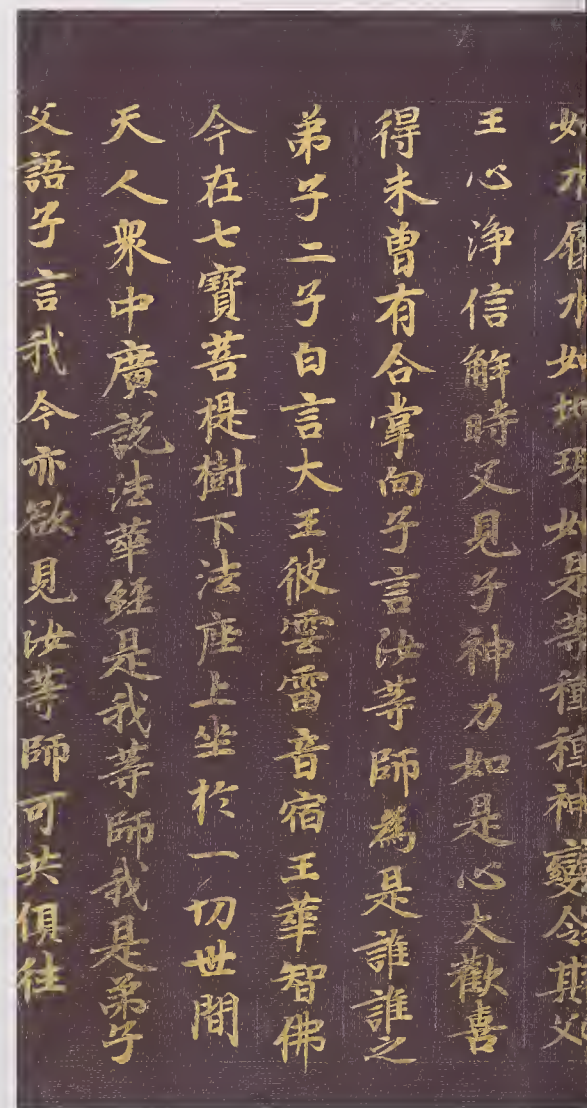 如水履水如地現如是等種種神變令其父
王心淨信解時父見子神力如是心大歡喜
得未曾有合掌向子言汝等師為是誰誰之
弟子二子白言大王彼雲雷音宿王華智佛
今在七寶菩提樹下法座上坐於一切世間
天人眾中廣說法華經是我等師我是弟子
父語子言我今亦欲見汝等師可共俱往